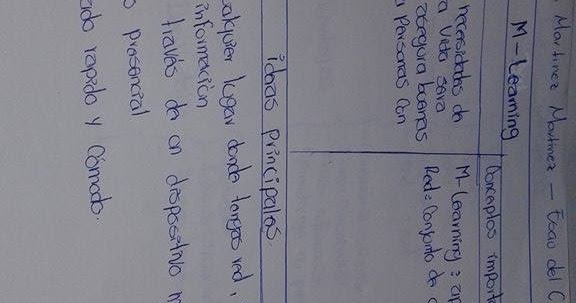 Martinez Martinez — Ecao del C
M-Learning
necesidades de
a vida sera
asegura buenas
personas con
Conceptos import
M-Learning: ap
Red: Conjunto de
ideas principales
ualquier lugar donde tengas red,
información
través de un dispositivo m
o presencial
ado rapido y Cómodo.